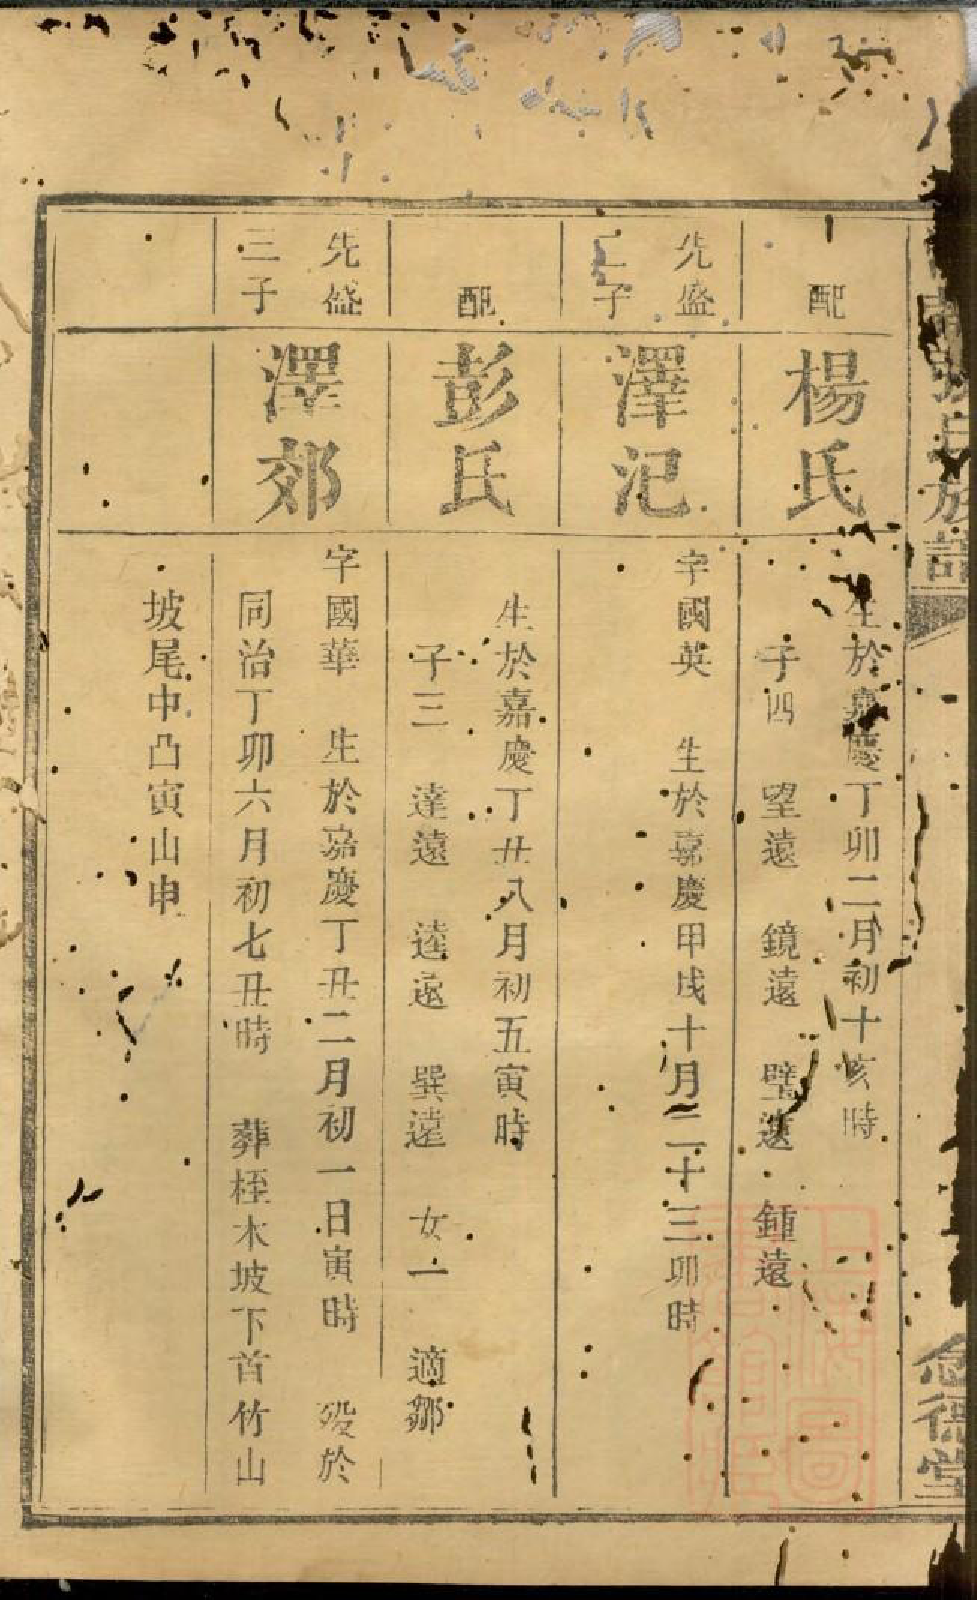 氏族譜
念德堂
配
楊氏
生於嘉慶丁卯二月初十亥時
子四 望遠 鏡遠 璧遠 鍾遠
先盛
二子
澤汜
字國英 生於嘉慶甲戌十月二十三卯時
配
彭氏
生於嘉慶丁丑八月初五寅時
子三 達遠 逵遠 巽遠 女一 適鄒
先盛
三子
澤郊
字國華 生於嘉慶丁丑二月初一日寅時 殁於
同治丁卯六月初七丑時 葬桎木坡下首竹山
坡尾中凸寅山申